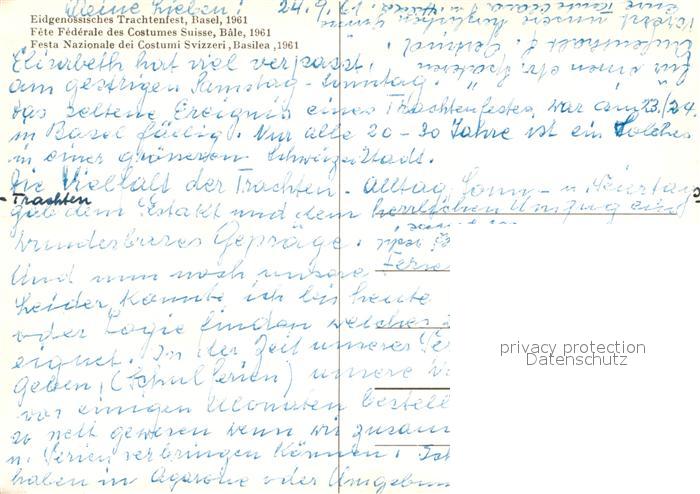 Meine Lieben! 24.9.61.
Eidgenössisches Trachtenfest, Basel, 1961
Fête Fédérale des Costumes Suisse, Bâle, 1961
Festa Nazionale dei Costumi Svizzeri, Basilea ,1961
Elisabeth hat viel verpasst!
am gestrigen Samstag - Sonntag.
Das seltene Ereignis eines Trachtenfestes, war am 23./24.
in Basel fällig. Nur alle 20-30 Jahre ist ein Solches
in einer grösseren Schweizerstadt.
Die Vielfalt der Trachten - Alltag, Sonn- u. Feiertags
- Trachten
gab dem Festakt und dem herrlichen Umzug ein
wunderbares Gepräge.
Und nun noch unsere Ferie
Leider konnte ich bis heute
oder Logie finden welches
eignet. In der Zeit unseres
geben, (Schulferien) unsere
vor einigen Monaten bestell
so nett gewesen wenn wir zusam
u. Ferien verbringen können. Ich
haben in Agarone oder Umgebun
privacy protection
Datenschutz